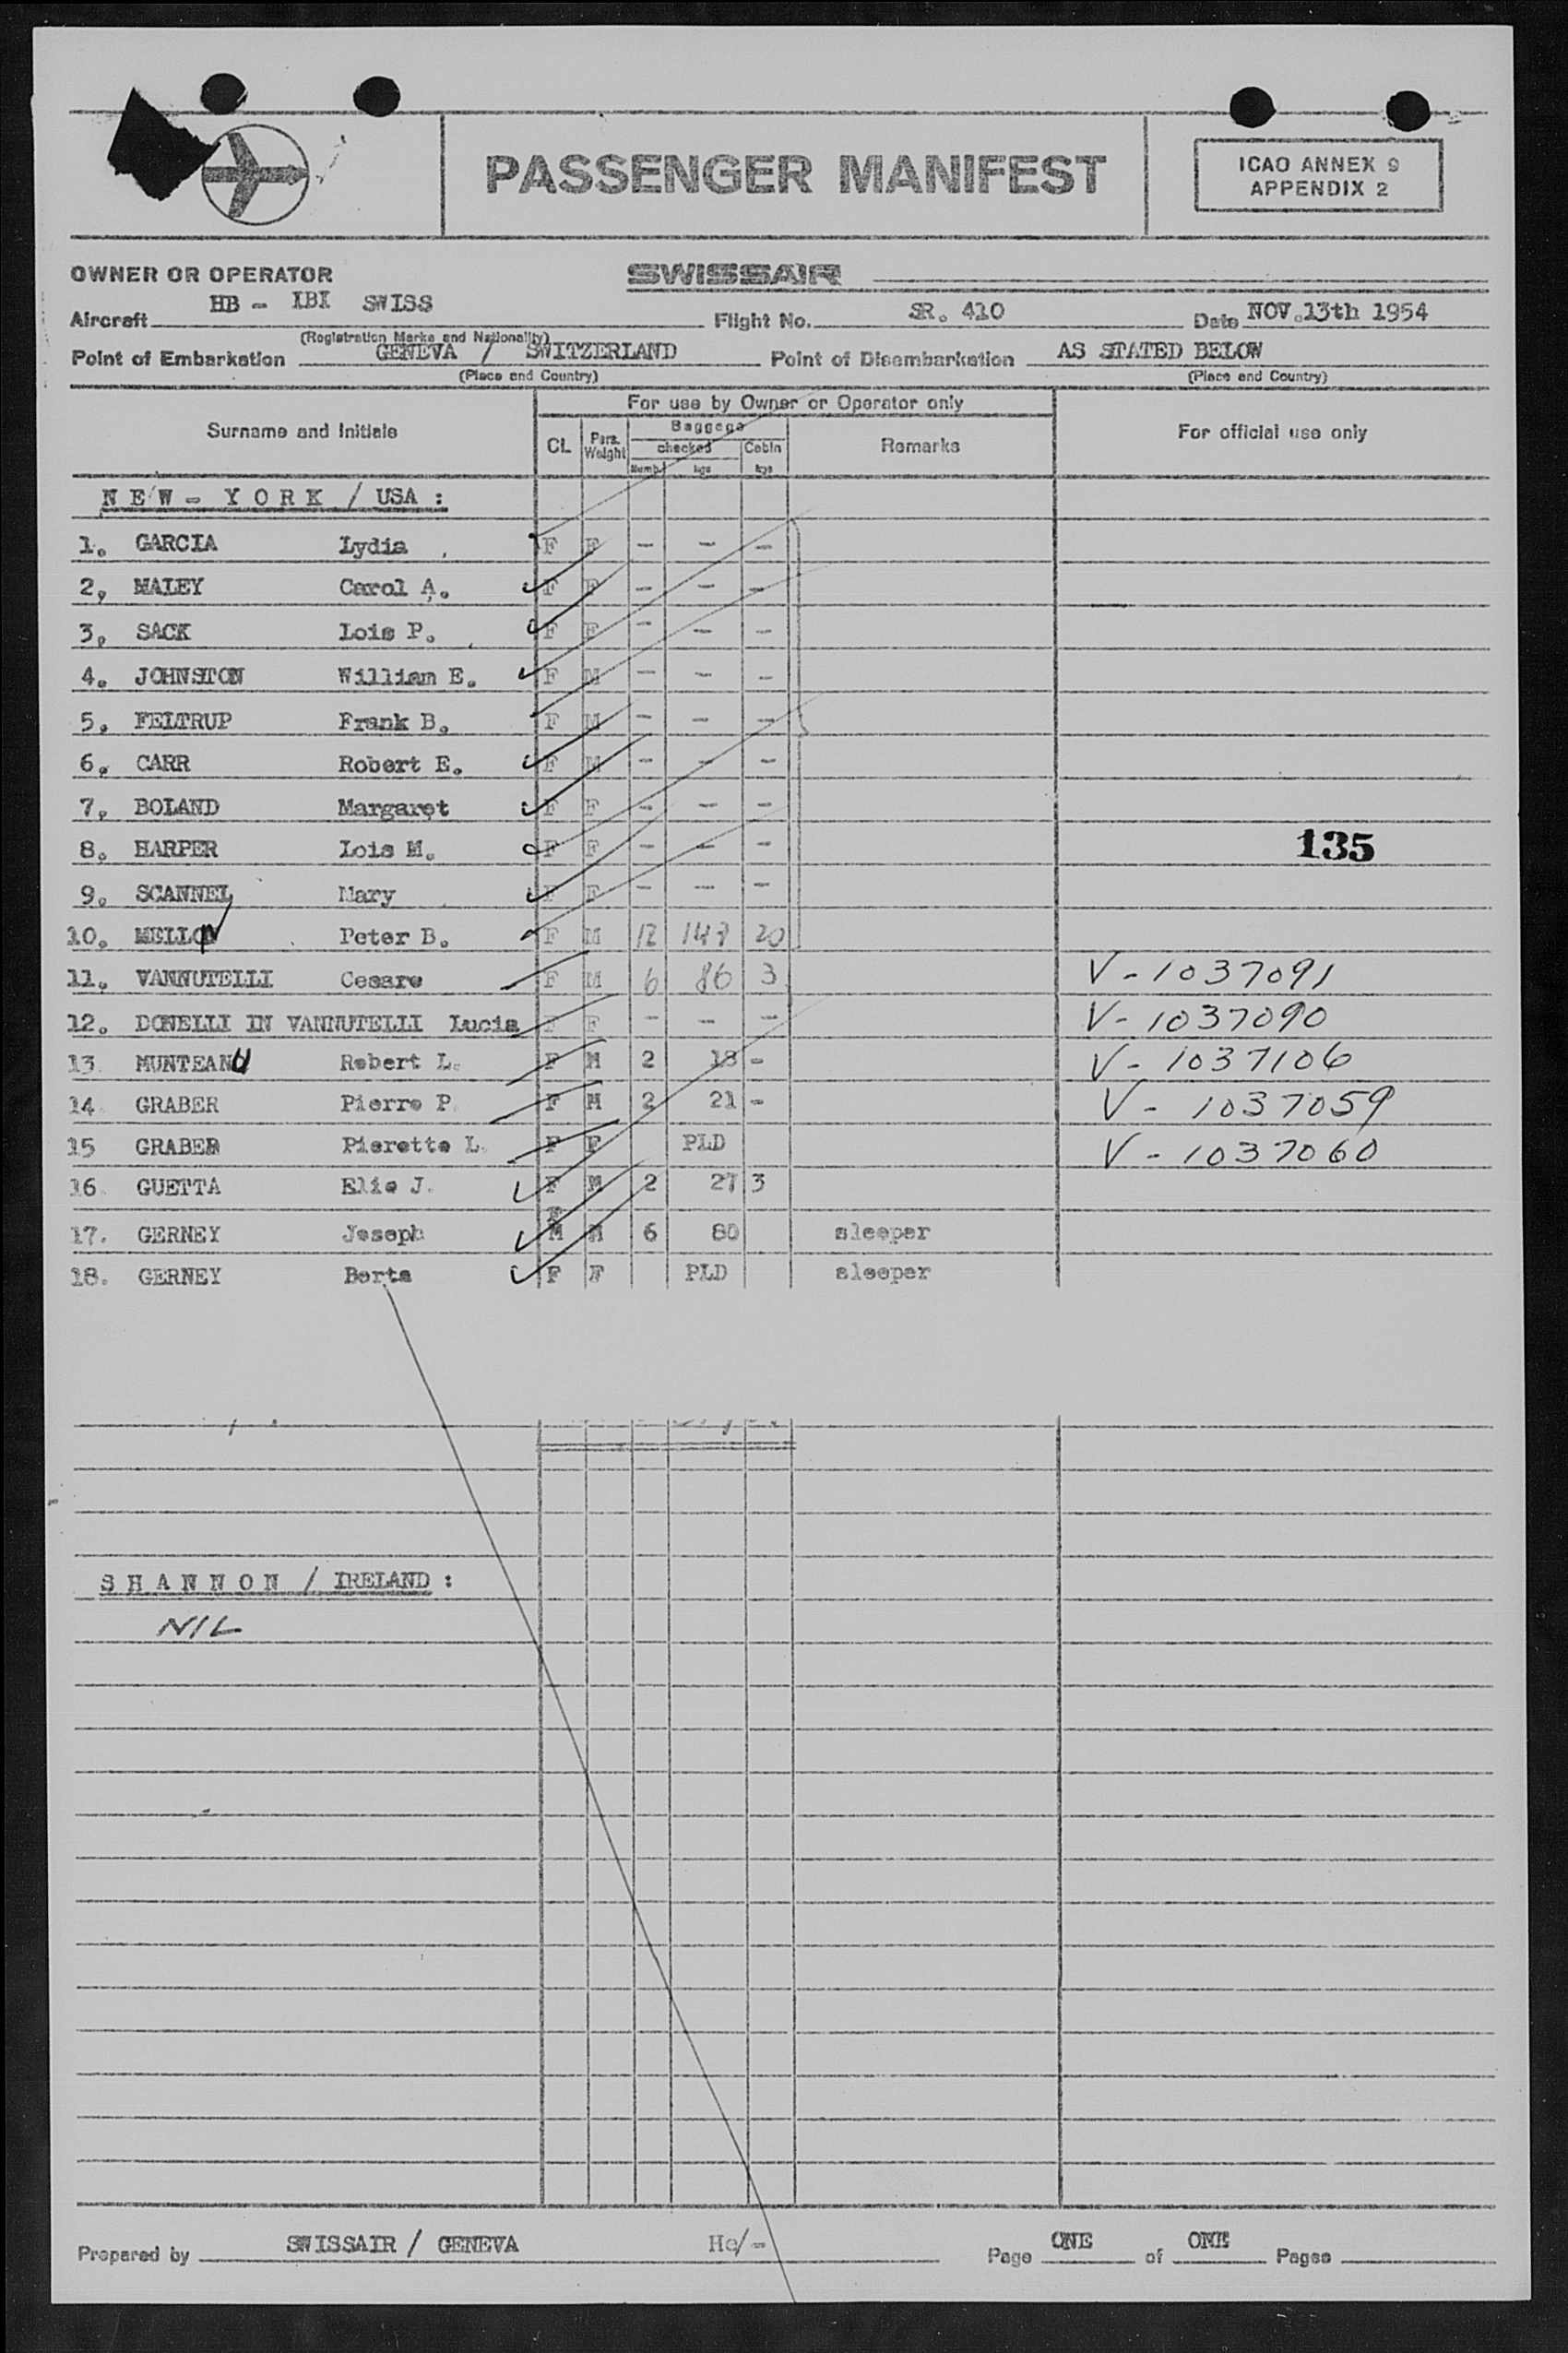 PASSENGER MANIFEST
ICAO ANNEX 9
APPENDIX 2
OWNER OR OPERATOR SWISSAIR
Aircraft HB - IBI SWISS Flight No. SR. 410 Date NOV.13th 1954
(Registration Marks and Nationality)
Point of Embarkation GENEVA / SWITZERLAND Point of Disembarkation AS STATED BELOW
(Place and Country) (Place and Country)
For use by Owner or Operator only
Surname and Initials CL. Pers. Weight Baggage checked Numb. kgs Cabin kgs Remarks For official use only
NEW - YORK / USA :
1. GARCIA Lydia F F - - -
2. MALEY Carol A. F F - - -
3. SACK Lois P. F F - - -
4. JOHNSTON William E. F M - - -
5. FELTRUP Frank B. F M - - -
6. CARR Robert E. F M - - -
7. BOLAND Margaret F F - - -
8. HARPER Lois M. F F - - - 135
9. SCANNEL Mary F F - - -
10. MELLON Peter B. F M 12 147 20
11. VANNUTELLI Cesare F M 6 86 3 V-1037091
12. DONELLI IN VANNUTELLI Lucia F F - - - V-1037090
13. MUNTEANU Robert L. F M 2 18 - V-1037106
14. GRABER Pierre P. F M 2 21 - V-1037059
15 GRABER Pierette L. F F PLD V-1037060
16. GUETTA Elie J. F M 2 27 3
17. GERNEY Joseph F M 6 80 sleeper
18. GERNEY Berta F F PLD sleeper
SHANNON / IRELAND :
NIL
Prepared by SWISSAIR / GENEVA Hc/- Page ONE of ONE Pages